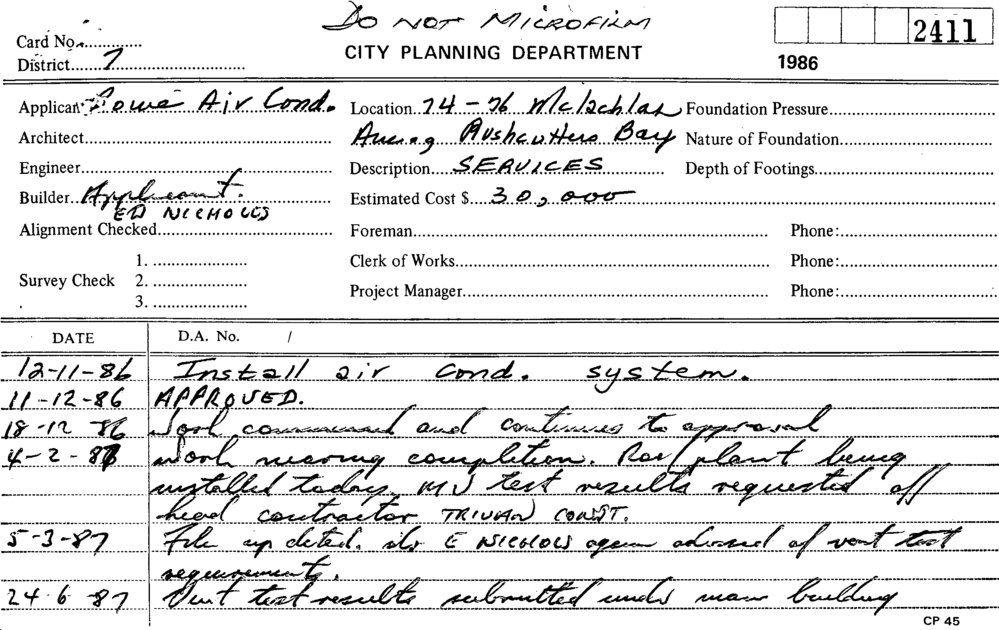 DO NOT MICROFILM
2411
Card No.
CITY PLANNING DEPARTMENT
1986
District 7
Applicant Rowe Air Cond. Location 74-76 McLachlan Foundation Pressure
Architect Avenue Rushcutters Bay Nature of Foundation
Engineer Description SERVICES Depth of Footings
Builder Applicant. Estimated Cost $ 30,000
ED NICHOLLS
Alignment Checked Foreman Phone:
1. Clerk of Works Phone:
Survey Check 2.
Project Manager Phone:
3.
DATE D.A. No. /
12-11-86 Install air cond. system.
11-12-86 APPROVED.
18-12 86 Work commenced and continues to approval
4-2-87 Work nearing completion. Roof plant being
installed today. MV test results requested off
head contractor TRIVAN CONST.
5-3-87 File up dated. E NICHOLLS again advised of vent test
requirements.
24.6-87 Vent test results submitted under main building
CP 45